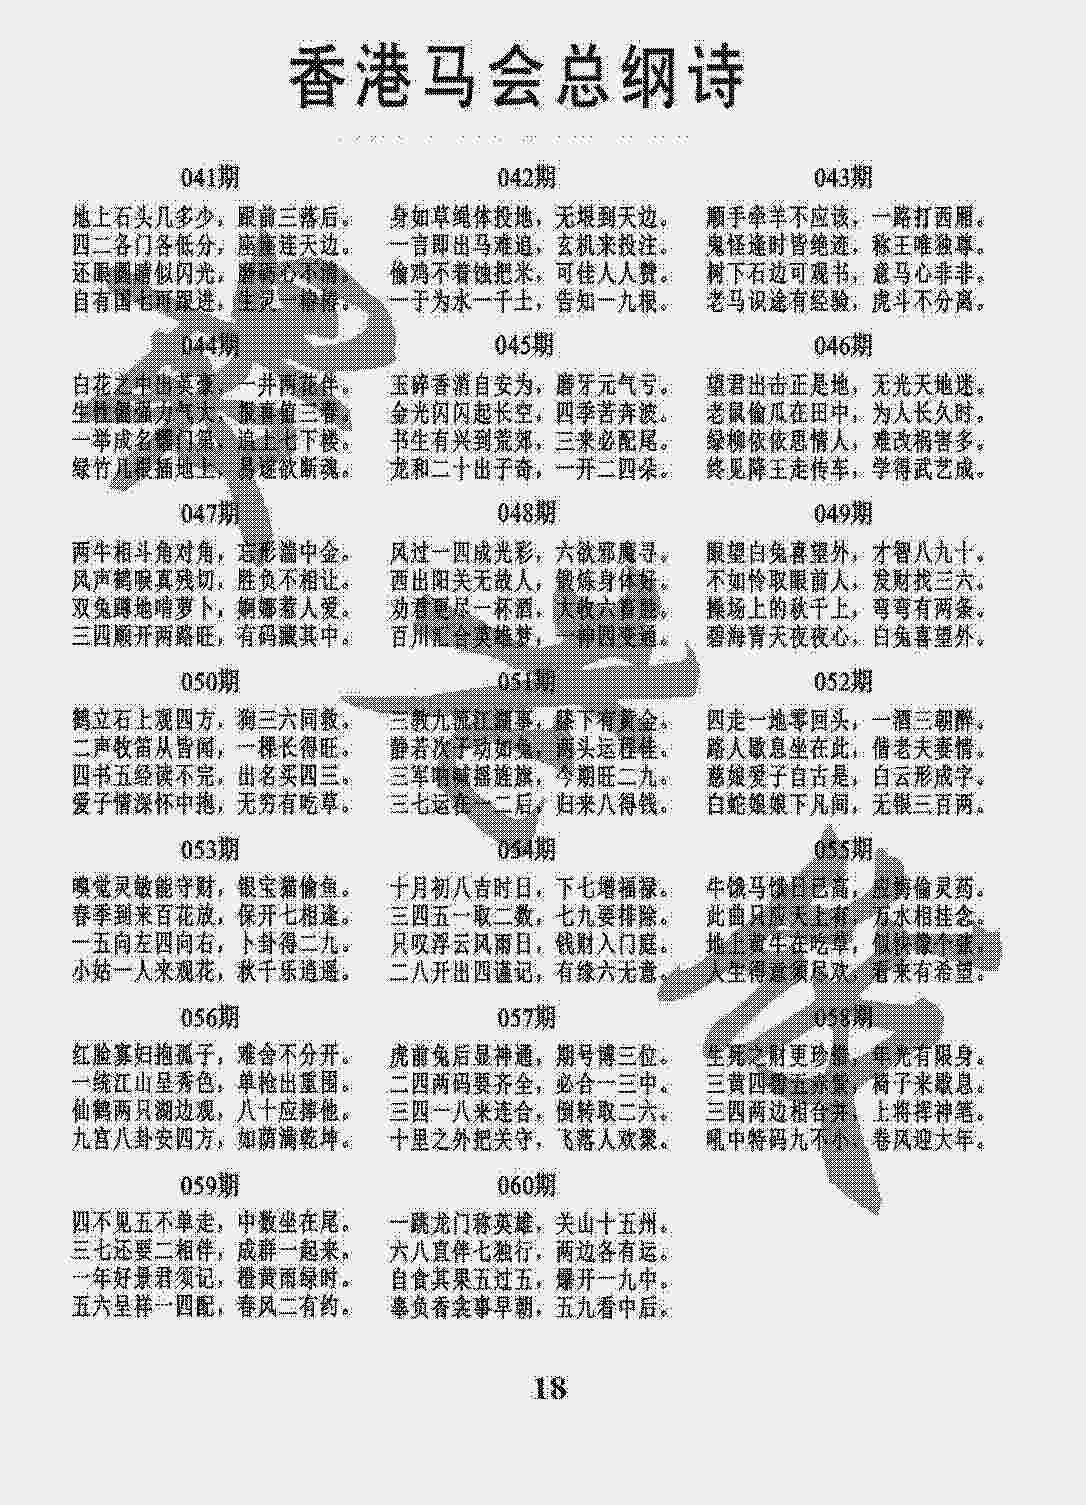 香港马会总纲诗
041期
地上石头几多少，跟前三落后。
四二各门各低分，座连天边。
还眼圆睛似闪光，心不
自有国七可跟进，主灵一
042期
身如草绳体投地，无垠到天边。
一言即出马难追，玄机来投注。
偷鸡不着蚀把米，可佳人人赞。
一于为水一千土，告知一九根。
043期
顺手牵羊不应该，一路打西厢。
鬼怪逢时皆绝迹，称王唯独尊。
树下石边可观书，意马心非非。
老马识途有经验，虎斗不分离。
044期
白花之中出英豪，一井两花伴。
生性倔强力气大，报喜值三春。
一举成名耀门第，追上七下楼。
绿竹几根插地上，易逆欲断魂。
045期
玉碎香消自安为，磨牙元气亏。
金光闪闪起长空，四季苦奔波。
书生有兴到荒郊，三来必配尾。
龙和二十出子奇，一开二四朵。
046期
望君出击正是地，无光天地迷。
老鼠偷瓜在田中，为人长久时。
绿柳依依思情人，难改祸害多。
终见降王走传车，学得武艺成。
047期
两牛相斗角对角，忘形湍中金。
风声鹤唳真残切，胜负不相让。
双兔蹲地啃萝卜，婀娜惹人爱。
三四顺开两路旺，有码藏其中。
048期
风过一四成光彩，六欲邪魔寻。
西出阳关无故人，锻炼身体好。
劝君更尽一杯酒，大收六
百川汇合英雄梦，一种四变通。
049期
眼望白兔喜望外，才智八九十。
不如怜取眼前人，发财找三六。
操场上的秋千上，弯弯有两条。
碧海青天夜夜心，白兔喜望外。
050期
鹤立石上观四方，狗三六同救。
二声牧笛从皆闻，一棵长得旺。
四书五经读不完，出名买四三。
爱子情深怀中抱，无穷有吃草。
051期
三教九流江湖事，膝下有黄金。
静若次子动如兔，两头运程佳。
三军呐喊摇旌旗，今期旺二九。
三七运在一二后，归来八得钱。
052期
四走一地零回头，一酒三朝醉。
路人歇息坐在此，偕老夫妻情。
慈娘爱子自古是，白云形成字。
白蛇娘娘下凡间，无银三百两。
053期
嗅觉灵敏能守财，银宝猫偷鱼。
春季到来百花放，保开七相逢。
一五向左四向右，卜卦得二九。
小姑一人来观花，秋千乐逍遥。
054期
十月初八吉时日，下七增福禄。
三四五一取二数，七九要排除。
只叹浮云风雨日，钱财入门庭。
二八开出四谨记，有缘六无意。
055期
牛饿马饿日已高，应悔偷灵药。
此曲只应天上有，万水相挂念。
地上黄牛在吃草，似
人生得意须尽欢，看来有希望。
056期
红脸寡妇抱孤子，难舍不分开。
一统江山呈秀色，单枪出重围。
仙鹤两只湖边观，八十应捧他。
九宫八卦安四方，如荫满乾坤。
057期
虎前兔后显神通，期号博三位。
二四两码要齐全，必合一三中。
三四一八来连合，倒转取二六。
十里之外把关守，飞落人欢聚。
058期
生死之财更珍惜，年光有限身。
三黄四 五，椅子来歇息。
三四两边相合并，上将挥神笔。
吼中特码九不小，卷风迎大年。
059期
四不见五不单走，中数坐在尾。
三七还要二相伴，成群一起来。
一年好景君须记，橙黄雨绿时。
五六呈祥一四配，春风二有约。
060期
一跳龙门称英雄，关山十五州。
六八直伴七独行，两边各有运。
自食其果五过五，爆开一九中。
辜负香衾事早朝，五九看中后。
18